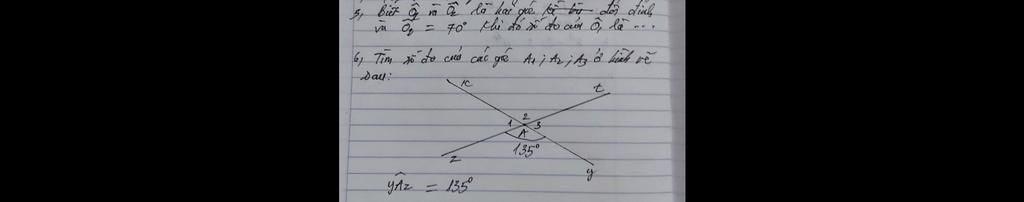 5, Biết Ô1 và Ô2 là hai góc đối đỉnh
và Ô2 = 70° khi đó số đo của Ô1 là ...
6, Tìm số đo của các góc A1; A2; A3 ở hình vẽ
sau:
x
t
2
1 3
A
135°
z
y
yÂz = 135°